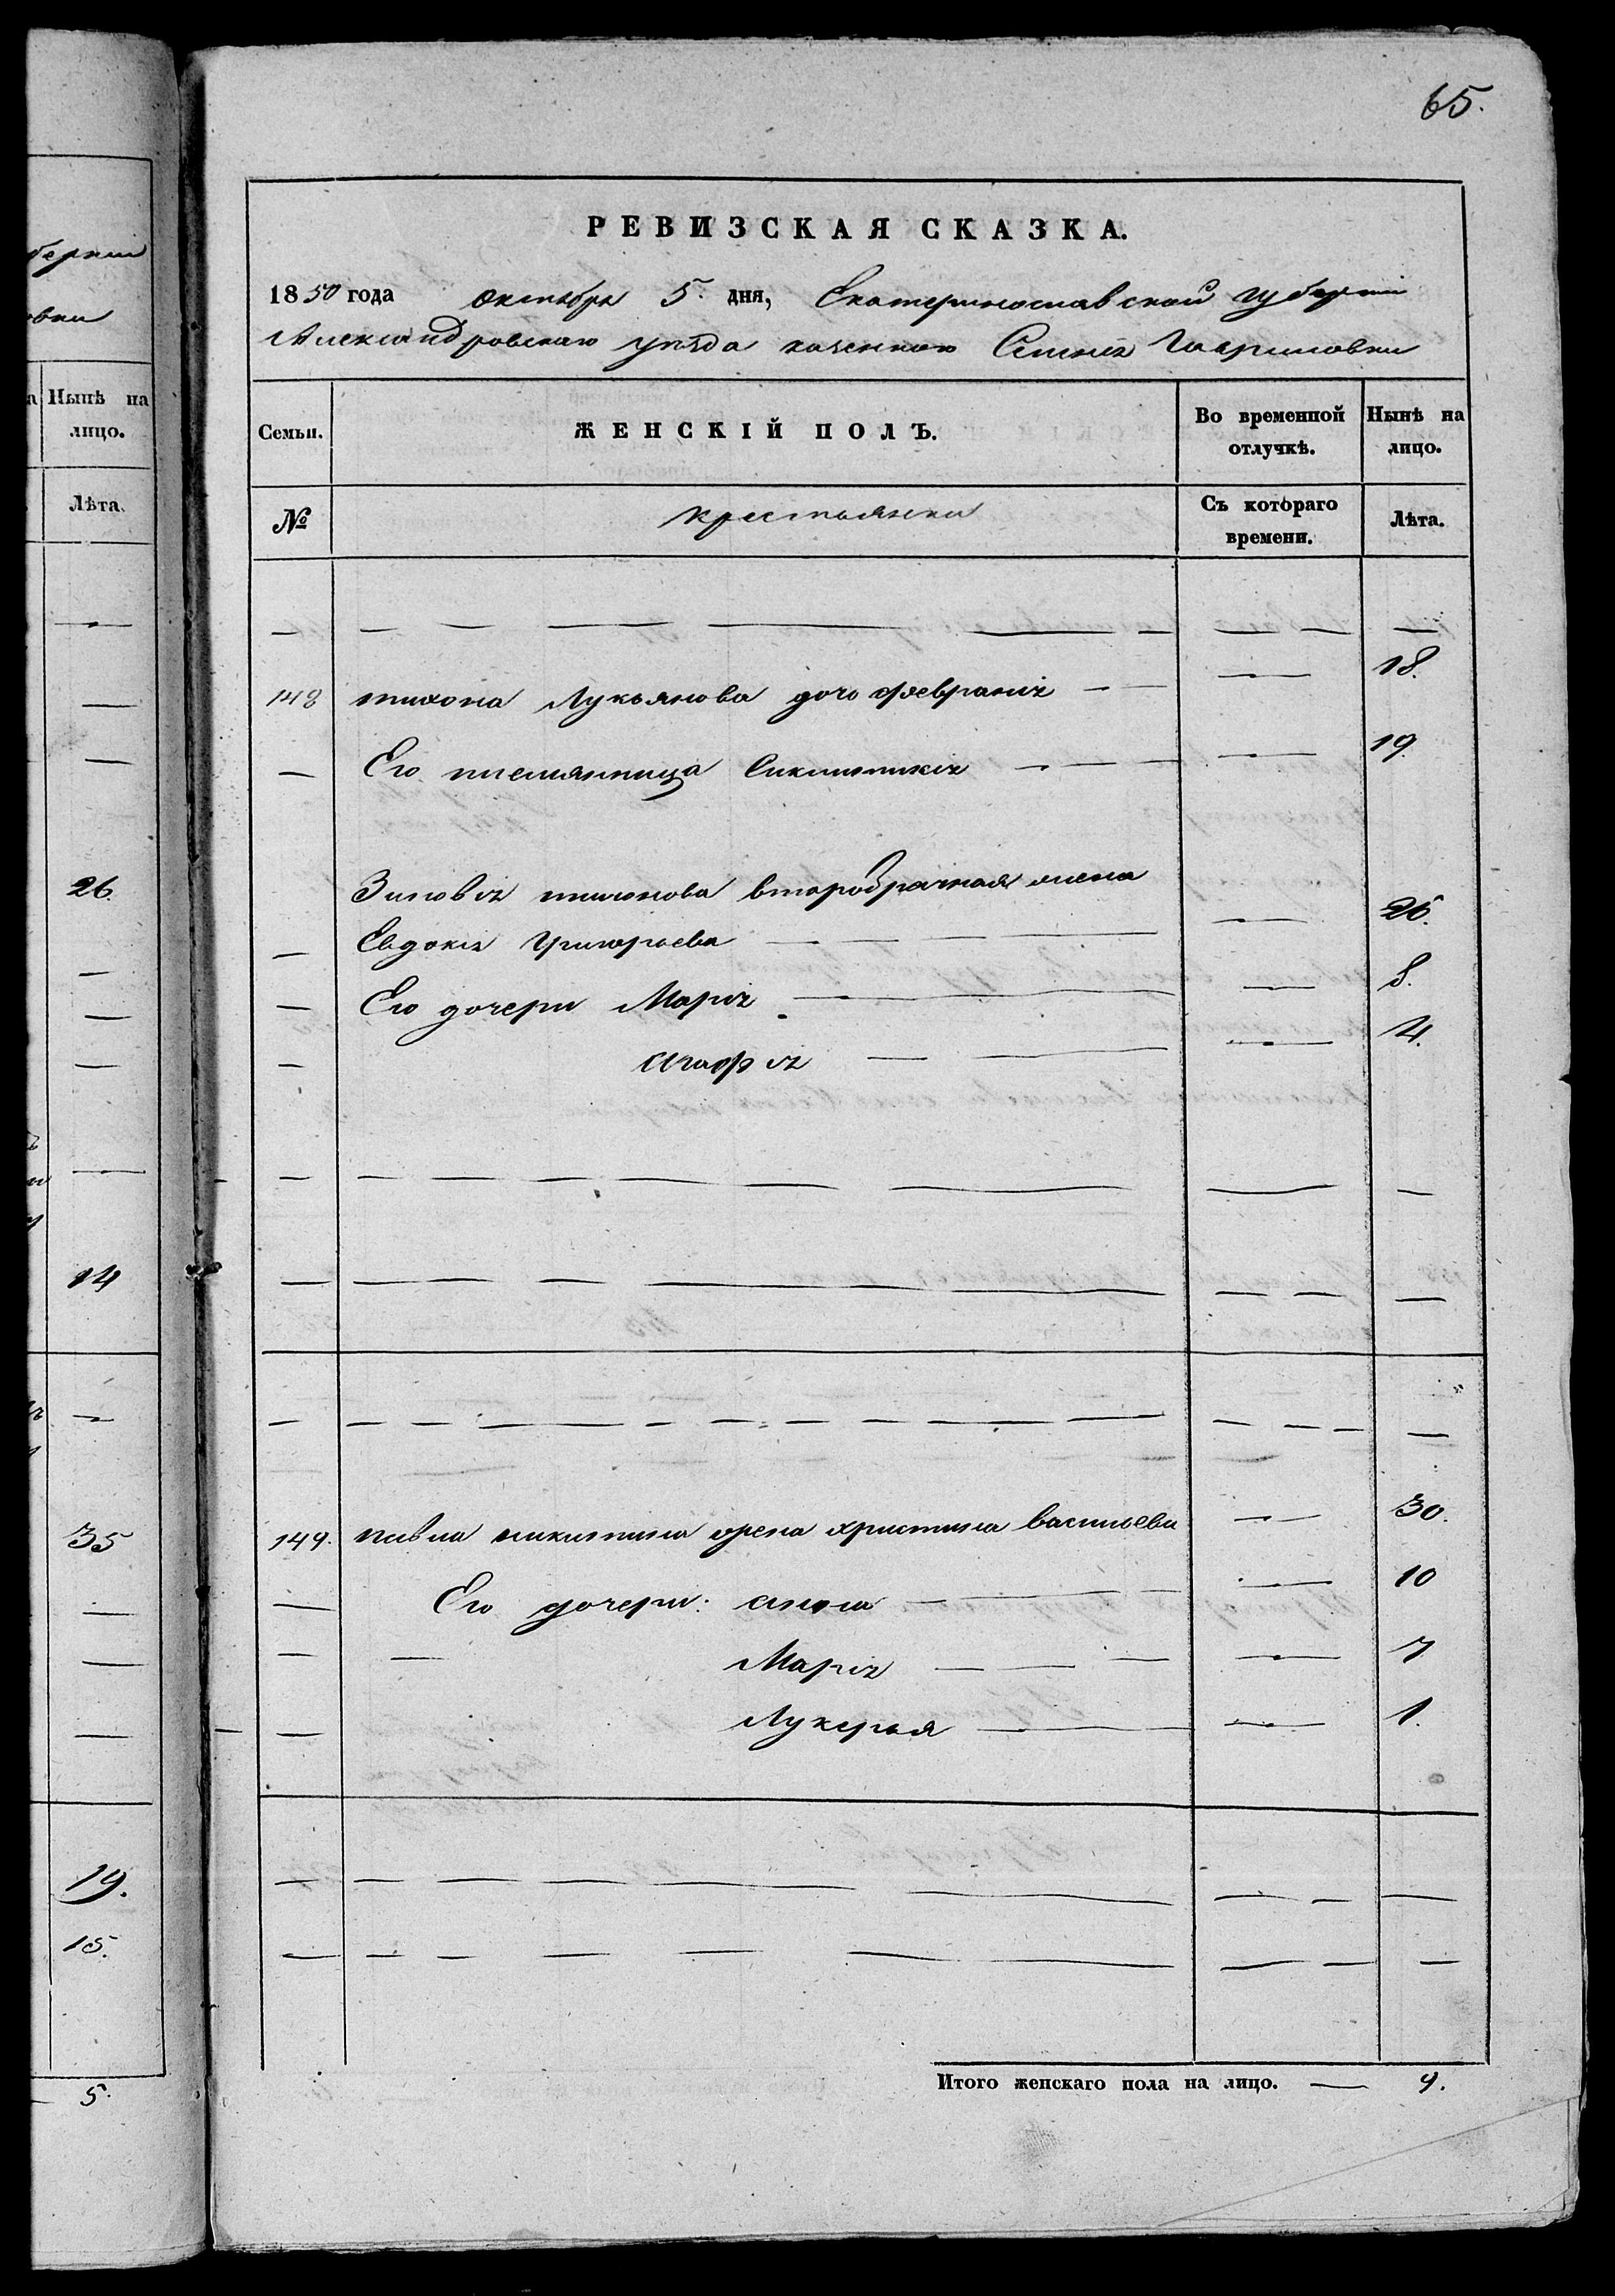 65.
РЕВИЗСКАЯ СКАЗКА.
1850 года октября 5. дня, Екатеринославской губернии
Александровскаго уѣзда казеннаго Селенія Гавриловки
Семьи. ЖЕНСКІЙ ПОЛЪ. Во временной отлучкѣ. Нынѣ на лицо.
№ крестьянки Съ котораго времени. Лѣта.
148 тихона Лукьянова дочь февранія 18.
Его племянница 19.
Зиновія тихонова второбрачная жена
Евдокія Григорьева 26.
Его дочери Марія 8.
агафія 4.
149. павла никитина жена христина васильева 30.
Его дочери: анна 10
Марія 7
Лукерья 1.
Итого женскаго пола на лицо. 9.
губерніи
овки
Нынѣ на
лицо.
Лѣта.
26.
14
35
19.
15.
5.